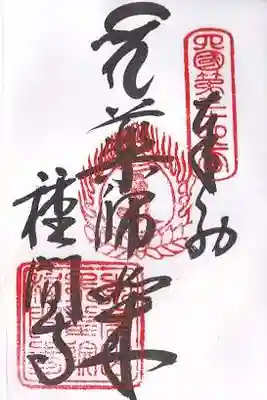 四國第三十四番
奉納
薬師如来
種間寺